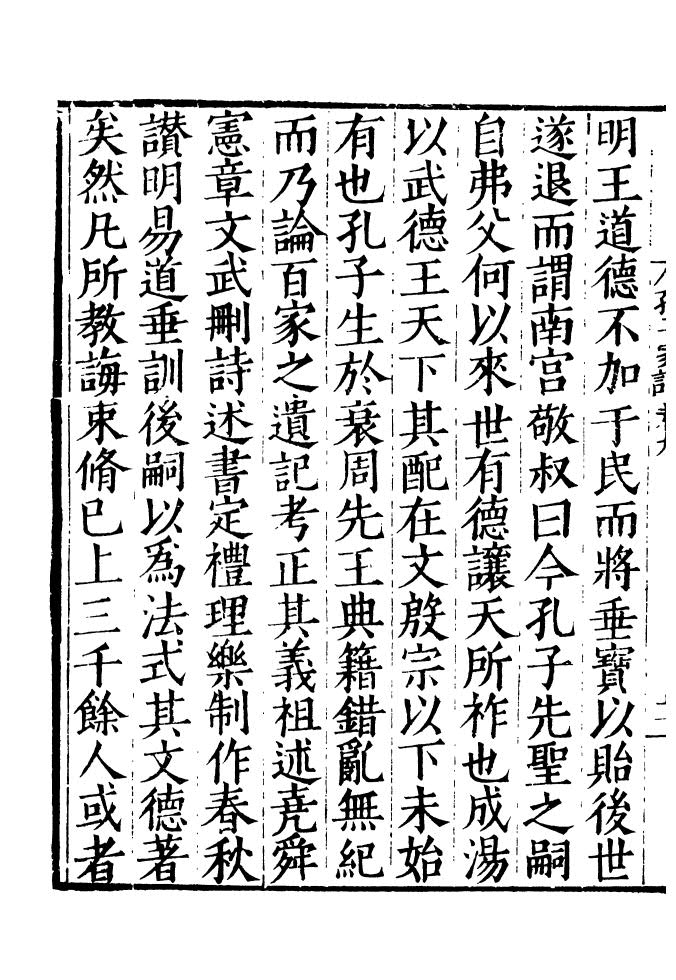 明王道德不加于民而將垂寶以貽後世
遂退而謂南宫敬叔曰今孔子先聖之嗣
自弗父何以來世有德讓天所祚也成湯
以武德王天下其配在文殷宗以下未始
有也孔子生於衰周先王典籍錯亂無紀
而乃論百家之遺記考正其義祖述堯舜
憲章文武刪詩述書定禮理樂制作春秋
讃明易道垂訓後嗣以為法式其文德著
矣然凡所教誨束脩已上三千餘人或者